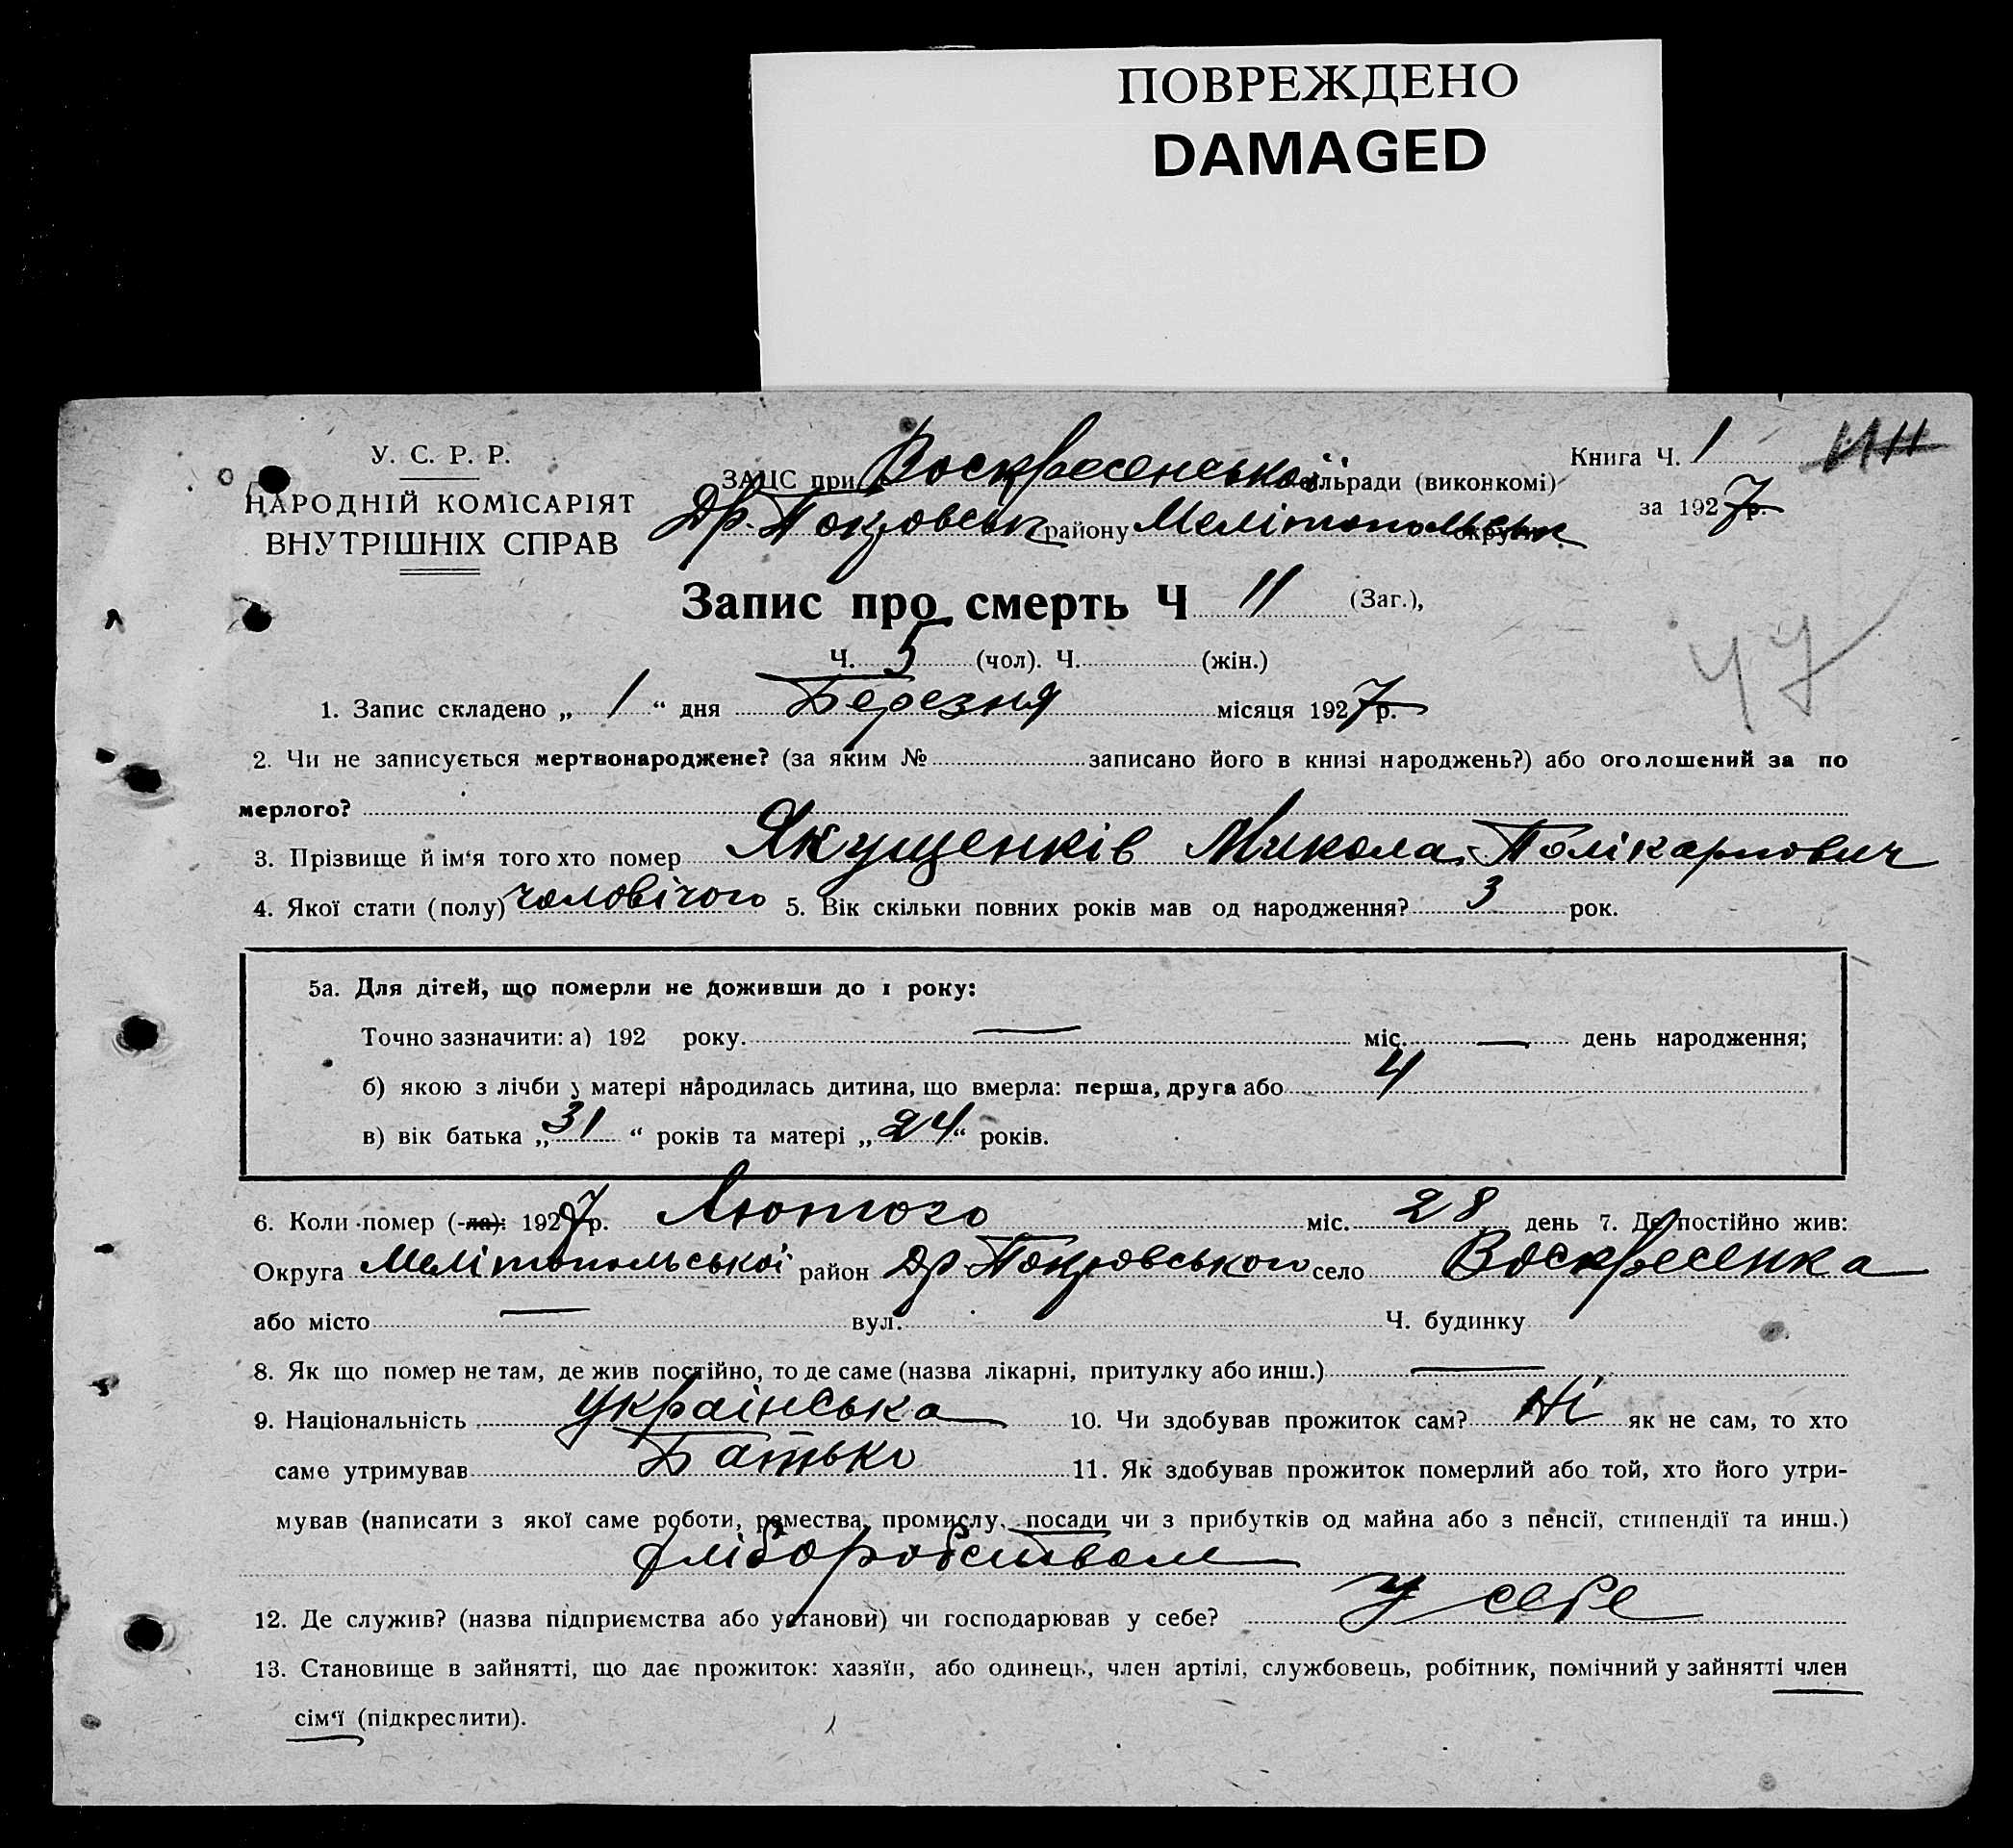 ПОВРЕЖДЕНО
DAMAGED
У. С. Р. Р.
НАРОДНІЙ КОМІСАРІЯТ
ВНУТРІШНІХ СПРАВ
ЗАЦС при Воскресенської сільради (виконкомі)
Др. Покровськ району Мелітопольськ округи
Книга Ч. 1
за 1927 р.
Запис про смерть Ч 11 (Заг.),
Ч. 5 (чол). Ч. (жін.)
47
1. Запис складено „ 1 “ дня Березня місяця 1927 р.
2. Чи не записується мертвонароджене? (за яким № записано його в книзі народжень?) або оголошений за по
мерлого?
3. Прізвище й ім‘я того хто помер Якущенків Микола Полікарпович
4. Якої стати (полу) чоловічого 5. Вік скільки повних років мав од народження? 3 рок.
5а. Для дітей, що померли не доживши до 1 року:
Точно зазначити: а) 192 року. — міс. — день народження;
б) якою з лічби у матері народилась дитина, що вмерла: перша, друга або 4
в) вік батька „ 31 “ років та матері „ 24 “ років.
6. Коли помер (-ла): 1927 р. Лютого міс. 28 день 7. Де постійно жив:
Округа Мелітопольської район Др Покровського село Воскресенка
або місто — вул. Ч. будинку
8. Як що помер не там, де жив постійно, то де саме (назва лікарні, притулку або инш.) —
9. Національність українська 10. Чи здобував прожиток сам? Ні як не сам, то хто
саме утримував Батько 11. Як здобував прожиток померлий або той, хто його утри-
мував (написати з якої саме роботи, ремества, промислу, посади чи з прибутків од майна або з пенсії, стипендії та инш.)
хліборобством
12. Де служив? (назва підприємства або установи) чи господарював у себе? У себе
13. Становище в зайнятті, що дає прожиток: хазяїн, або одинець, член артілі, службовець, робітник, помічний у зайнятті член
сім‘ї (підкреслити).